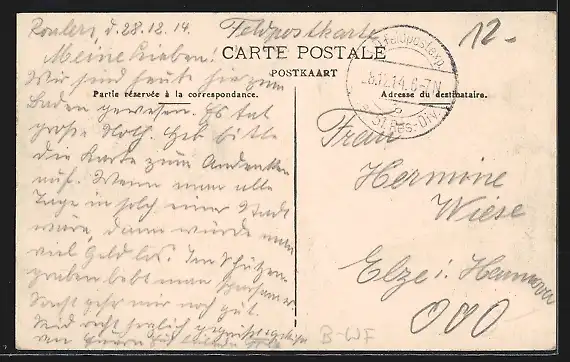 Roulers, d. 28.12.14. Feldpostkarte
12-
CARTE POSTALE
POSTKAART
Partie réservée à la correspondance.
Adresse du destinataire.
Meine Lieben!
Wir sind heute hier zum
Baden gewesen. Es tat
große Noth. Heb bitte
die Karte zum Andenken
auf. Wenn man alle
Tage in solch einer Stadt
wäre, dann würde man
viel Geld los. Im Schützen-
graben lebt man sparsamer
Sonst geht mir noch gut.
Seid recht herzlich gegrüßt
von
Frau
Hermine
Wiese
Elze i. Hannover
B-WF